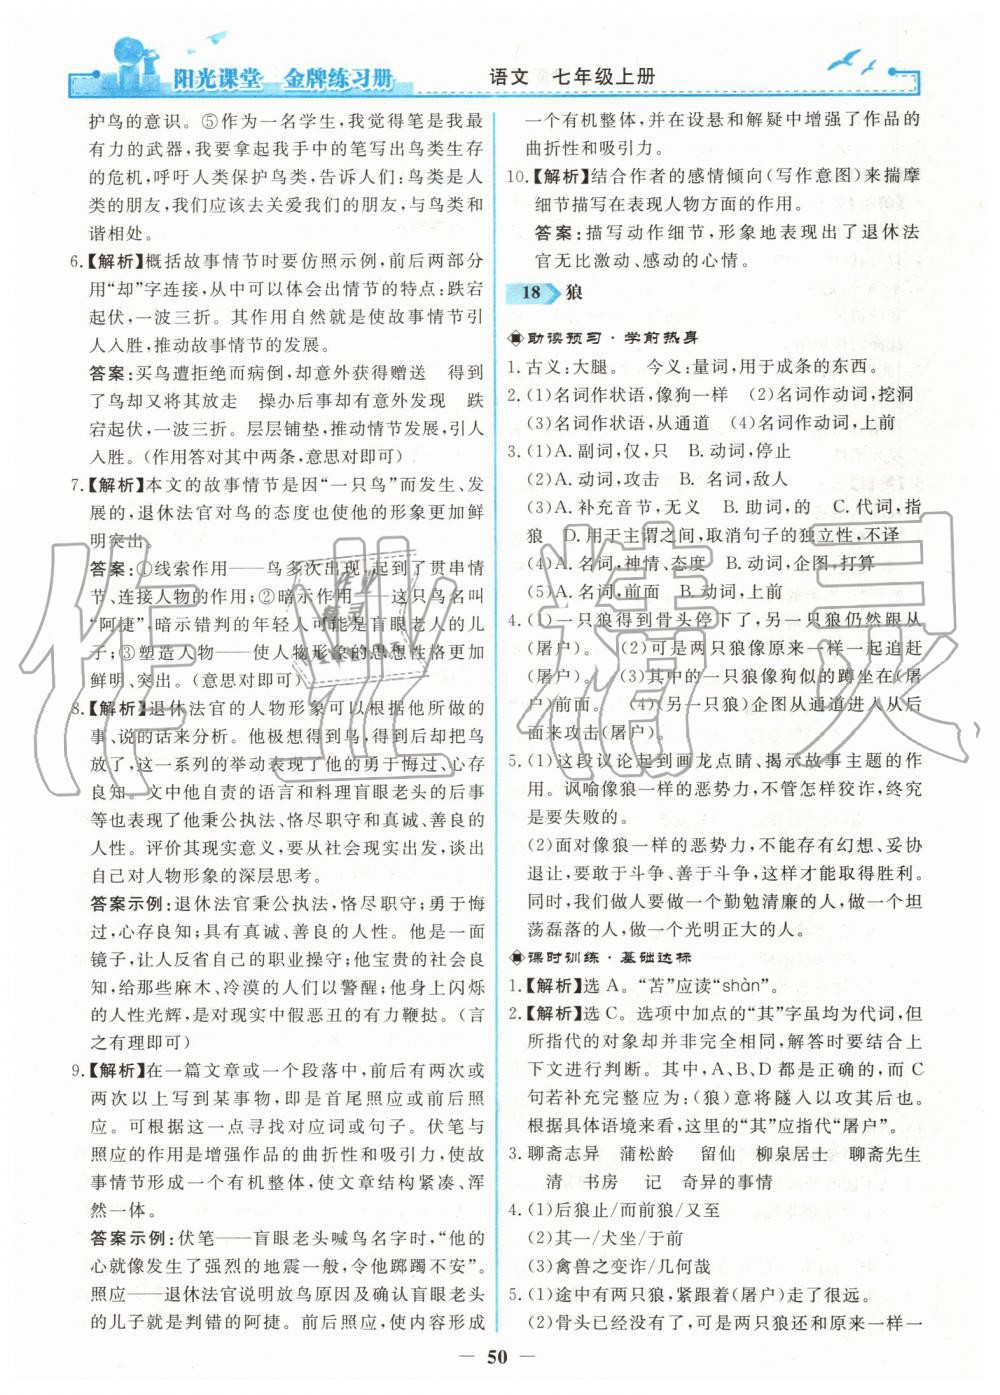 阳光课堂 金牌练习册
语文 七年级上册
护鸟的意识。⑤作为一名学生,我觉得笔是我最
有力的武器,我要拿起我手中的笔写出鸟类生存
的危机,呼吁人类保护鸟类,告诉人们:鸟类是人
类的朋友,我们应该去关爱我们的朋友,与鸟类和
谐相处。
6.【解析】概括故事情节时要仿照示例,前后两部分
用“却”字连接,从中可以体会出情节的特点:跌宕
起伏,一波三折。其作用自然就是使故事情节引
人入胜,推动故事情节的发展。
答案:买鸟遭拒绝而病倒,却意外获得赠送 得到
了鸟却又将其放走 操办后事却有意外发现 跌
宕起伏,一波三折。层层铺垫,推动情节发展,引人
入胜。(作用答对其中两条,意思对即可)
7.【解析】本文的故事情节是因“一只鸟”而发生、发展
的,退休法官对鸟的态度也使他的形象更加鲜
明突出。
答案:①线索作用——鸟多次出现,起到了贯串情
节、连接人物的作用;②暗示作用——这只鸟名叫
“阿捷”,暗示错判的年轻人可能是盲眼老人的儿
子;③塑造人物——使人物形象的思想性格更加
鲜明、突出。(意思对即可)
8.【解析】退休法官的人物形象可以根据他所做的
事、说的话来分析。他极想得到鸟,得到后却把鸟
放了,这一系列的举动表现了他的勇于悔过、心存
良知。文中他自责的语言和料理盲眼老头的后事
等也表现了他秉公执法、恪尽职守和真诚、善良的
人性。评价其现实意义,要从社会现实出发,谈出
自己对人物形象的深层思考。
答案示例:退休法官秉公执法,恪尽职守;勇于悔
过,心存良知;具有真诚、善良的人性。他是一面
镜子,让人反省自己的职业操守;他宝贵的社会良
知,给那些麻木、冷漠的人们以警醒;他身上闪烁
的人性光辉,是对现实中假恶丑的有力鞭挞。(言
之有理即可)
9.【解析】在一篇文章或一个段落中,前后有两次或
两次以上写到某事物,即是首尾照应或前后照
应。可根据这一点寻找对应词或句子。伏笔与
照应的作用是增强作品的曲折性和吸引力,使故
事情节形成一个有机整体,使文章结构紧凑、浑
然一体。
答案示例:伏笔——盲眼老头喊鸟名字时,“他的
心就像发生了强烈的地震一般,令他踯躅不安”。
照应——退休法官说明放鸟原因及确认盲眼老头
的儿子就是判错的阿捷。前后照应,使内容形成
一个有机整体,并在设悬和解疑中增强了作品的
曲折性和吸引力。
10.【解析】结合作者的感情倾向(写作意图)来揣摩
细节描写在表现人物方面的作用。
答案:描写动作细节,形象地表现出了退休法
官无比激动、感动的心情。
18 狼
助读预习·学前热身
1.古义:大腿。 今义:量词,用于成条的东西。
2.(1)名词作状语,像狗一样 (2)名词作动词,挖洞
(3)名词作状语,从通道 (4)名词作动词,上前
3.(1)A.副词,仅,只 B.动词,停止
(2)A.动词,攻击 B.名词,敌人
(3)A.补充音节,无义 B.助词,的 C.代词,指
狼 D.用于主谓之间,取消句子的独立性,不译
(4)A.名词,神情、态度 B.动词,企图,打算
(5)A.名词,前面 B.动词,上前
4.(1)一只狼得到骨头停下了,另一只狼仍然跟从
(屠户)。 (2)可是两只狼像原来一样一起追赶
(屠户)。 (3)其中的一只狼像狗似的蹲坐在(屠
户)前面。 (4)(另一只狼)企图从通道进入从后
面来攻击(屠户)。
5.(1)这段议论起到画龙点睛、揭示故事主题的作
用。讽喻像狼一样的恶势力,不管怎样狡诈,终究
是要失败的。
(2)面对像狼一样的恶势力,不能存有幻想、妥协
退让,要敢于斗争、善于斗争,这样才能取得胜利。
同时,我们做人要做一个勤勉清廉的人,做一个坦
荡磊落的人,做一个光明正大的人。
课时训练·基础达标
1.【解析】选 A。“苫”应读“shàn”。
2.【解析】选 C。选项中加点的“其”字虽均为代词,但
所指代的对象却并非完全相同,解答时要结合上
下文进行判断。其中,A、B、D 都是正确的,而 C
句若补充完整应为:(狼)意将隧入以攻其后也。
根据具体语境来看,这里的“其”应指代“屠户”。
3.聊斋志异 蒲松龄 留仙 柳泉居士 聊斋先生
清 书房 记 奇异的事情
4.(1)后狼止/而前狼/又至
(2)其一/犬坐/于前
(3)禽兽之变诈/几何哉
5.(1)途中有两只狼,紧跟着(屠户)走了很远。
(2)骨头已经没有了,可是两只狼还和原来一样一
50
作业精灵